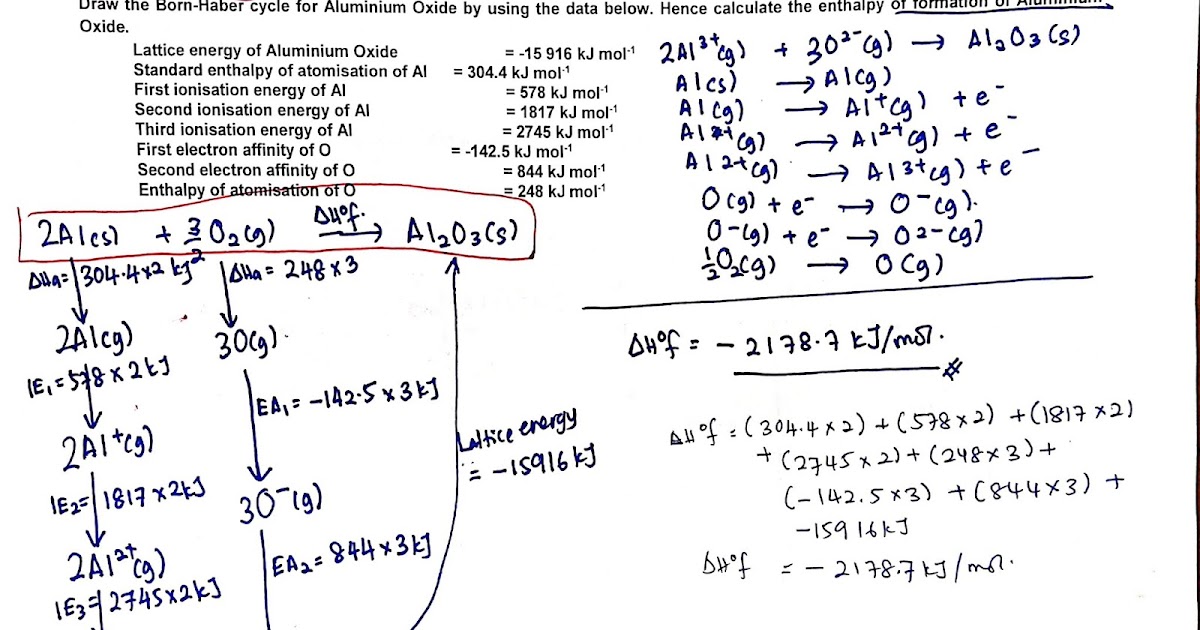 Draw the Born-Haber cycle for Aluminium Oxide by using the data below. Hence calculate the enthalpy of formation of Aluminium
Oxide.
Lattice energy of Aluminium Oxide = -15 916 kJ mol⁻¹
Standard enthalpy of atomisation of Al = 304.4 kJ mol⁻¹
First ionisation energy of Al = 578 kJ mol⁻¹
Second ionisation energy of Al = 1817 kJ mol⁻¹
Third ionisation energy of Al = 2745 kJ mol⁻¹
First electron affinity of O = -142.5 kJ mol⁻¹
Second electron affinity of O = 844 kJ mol⁻¹
Enthalpy of atomisation of O = 248 kJ mol⁻¹
2Al³⁺(g) + 3O²⁻(g) → Al₂O₃(s)
Al(s) → Al(g)
Al(g) → Al⁺(g) + e⁻
Al⁺(g) → Al²⁺(g) + e⁻
Al²⁺(g) → Al³⁺(g) + e⁻
O(g) + e⁻ → O⁻(g).
O⁻(g) + e⁻ → O²⁻(g)
½O₂(g) → O(g)
2Al(s) + 3/2 O₂(g) ΔH°f. → Al₂O₃(s)
ΔHa = 304.4 x 2 kJ ΔHa = 248 x 3
2Al(g) 3O(g).
IE₁ = 578 x 2 kJ
EA₁ = -142.5 x 3 kJ
2Al⁺(g)
IE₂ = 1817 x 2 kJ 3O⁻(g)
2Al²⁺(g) EA₂ = 844 x 3 kJ
IE₃ = 2745 x 2 kJ
Lattice energy
= -15916 kJ
ΔH°f = - 2178.7 kJ/mol.
#
ΔH°f = (304.4 x 2) + (578 x 2) + (1817 x 2)
+ (2745 x 2) + (248 x 3) +
(-142.5 x 3) + (844 x 3) +
-15916 kJ
ΔH°f = - 2178.7 kJ/mol.